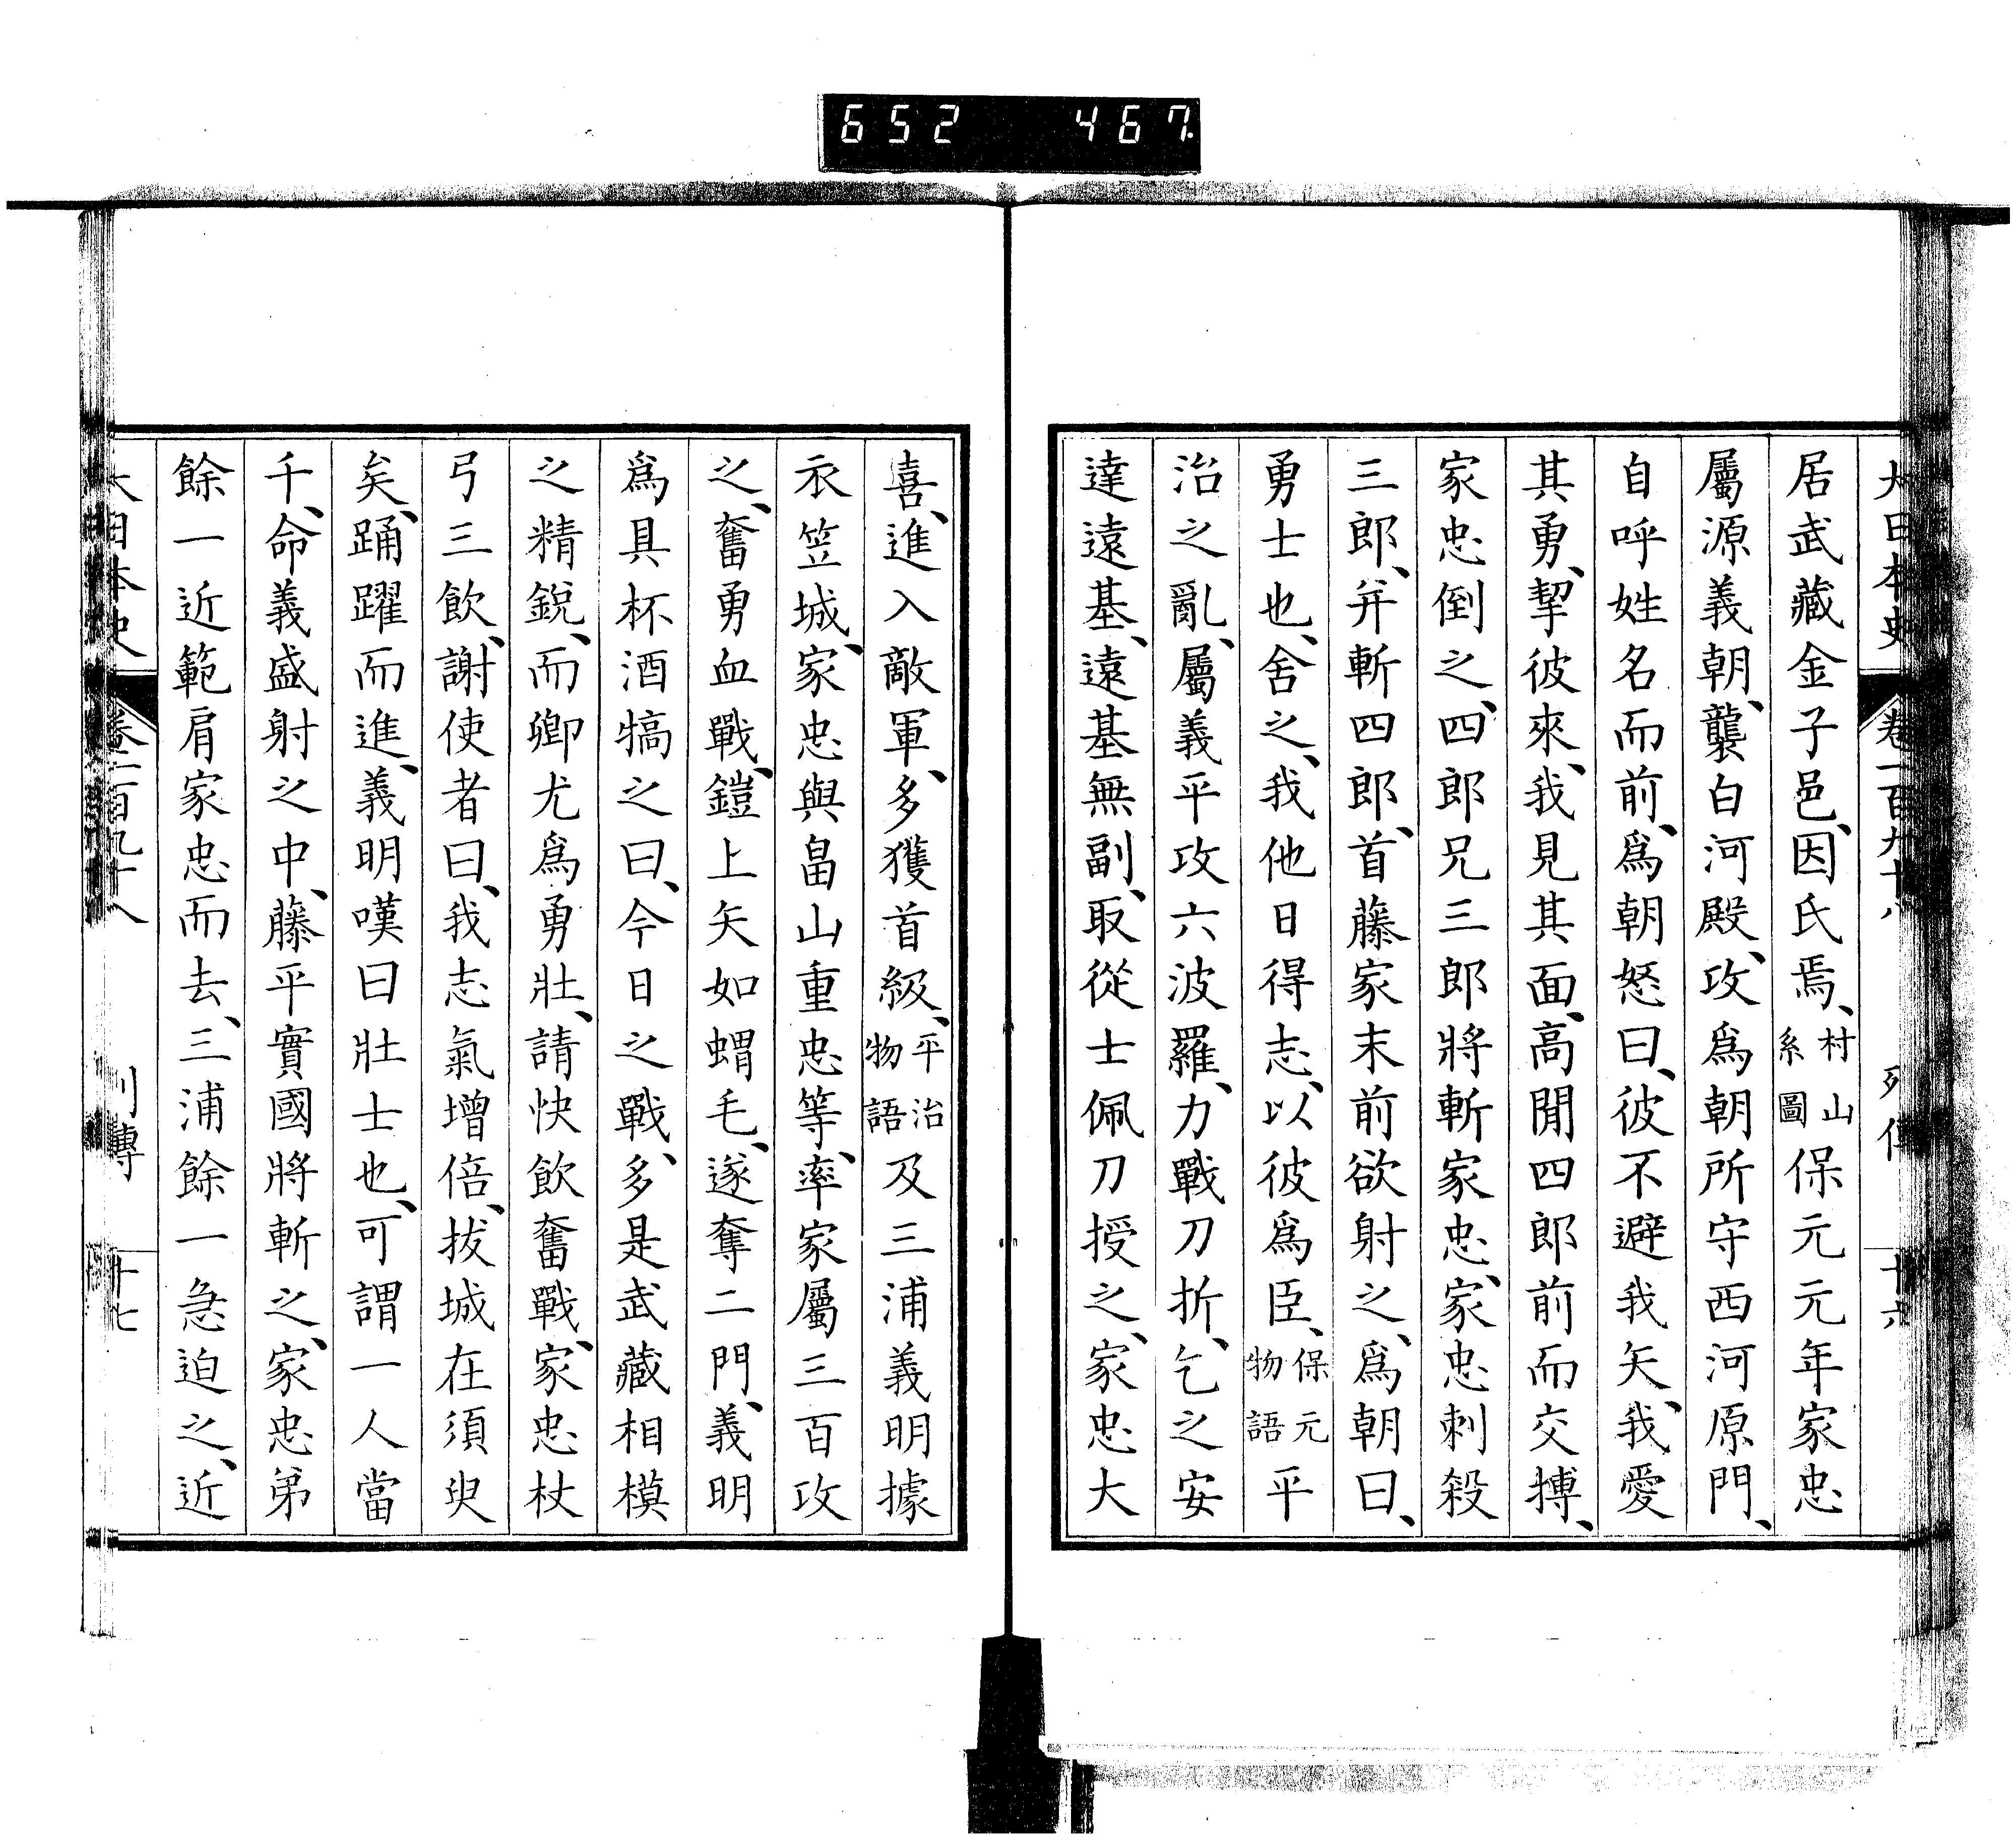 652 467
大日本史 卷一百九十八 列傳 十六
居武藏金子邑、因氏焉、村山系圖保元元年家忠
屬源義朝、襲白河殿、攻爲朝所守西河原門、
自呼姓名而前、爲朝怒曰、彼不避我矢、我愛
其勇、挈彼來、我見其面、高閒四郎前而交搏、
家忠倒之、四郎兄三郎將斬家忠、家忠刺殺
三郎、幷斬四郎、首藤家末前欲射之、爲朝曰、
勇士也、舍之、我他日得志、以彼爲臣、保元物語平
治之亂、屬義平攻六波羅、力戰刀折、乞之安
達遠基、遠基無副、取從士佩刀授之、家忠大
喜、進入敵軍、多獲首級、平治物語及三浦義明據
衣笠城、家忠與畠山重忠等、率家屬三百攻
之、奮勇血戰、鎧上矢如蝟毛、遂奪二門、義明
爲具杯酒犒之曰、今日之戰、多是武藏相模
之精銳、而卿尤爲勇壯、請快飮奮戰、家忠杖
弓三飮、謝使者曰、我志氣增倍、拔城在須臾
矣、踊躍而進、義明嘆曰壯士也、可謂一人當
千、命義盛射之中、藤平實國將斬之、家忠弟
餘一近範肩家忠而去、三浦餘一急迫之、近
大日本史 卷一百九十八 列傳 十七